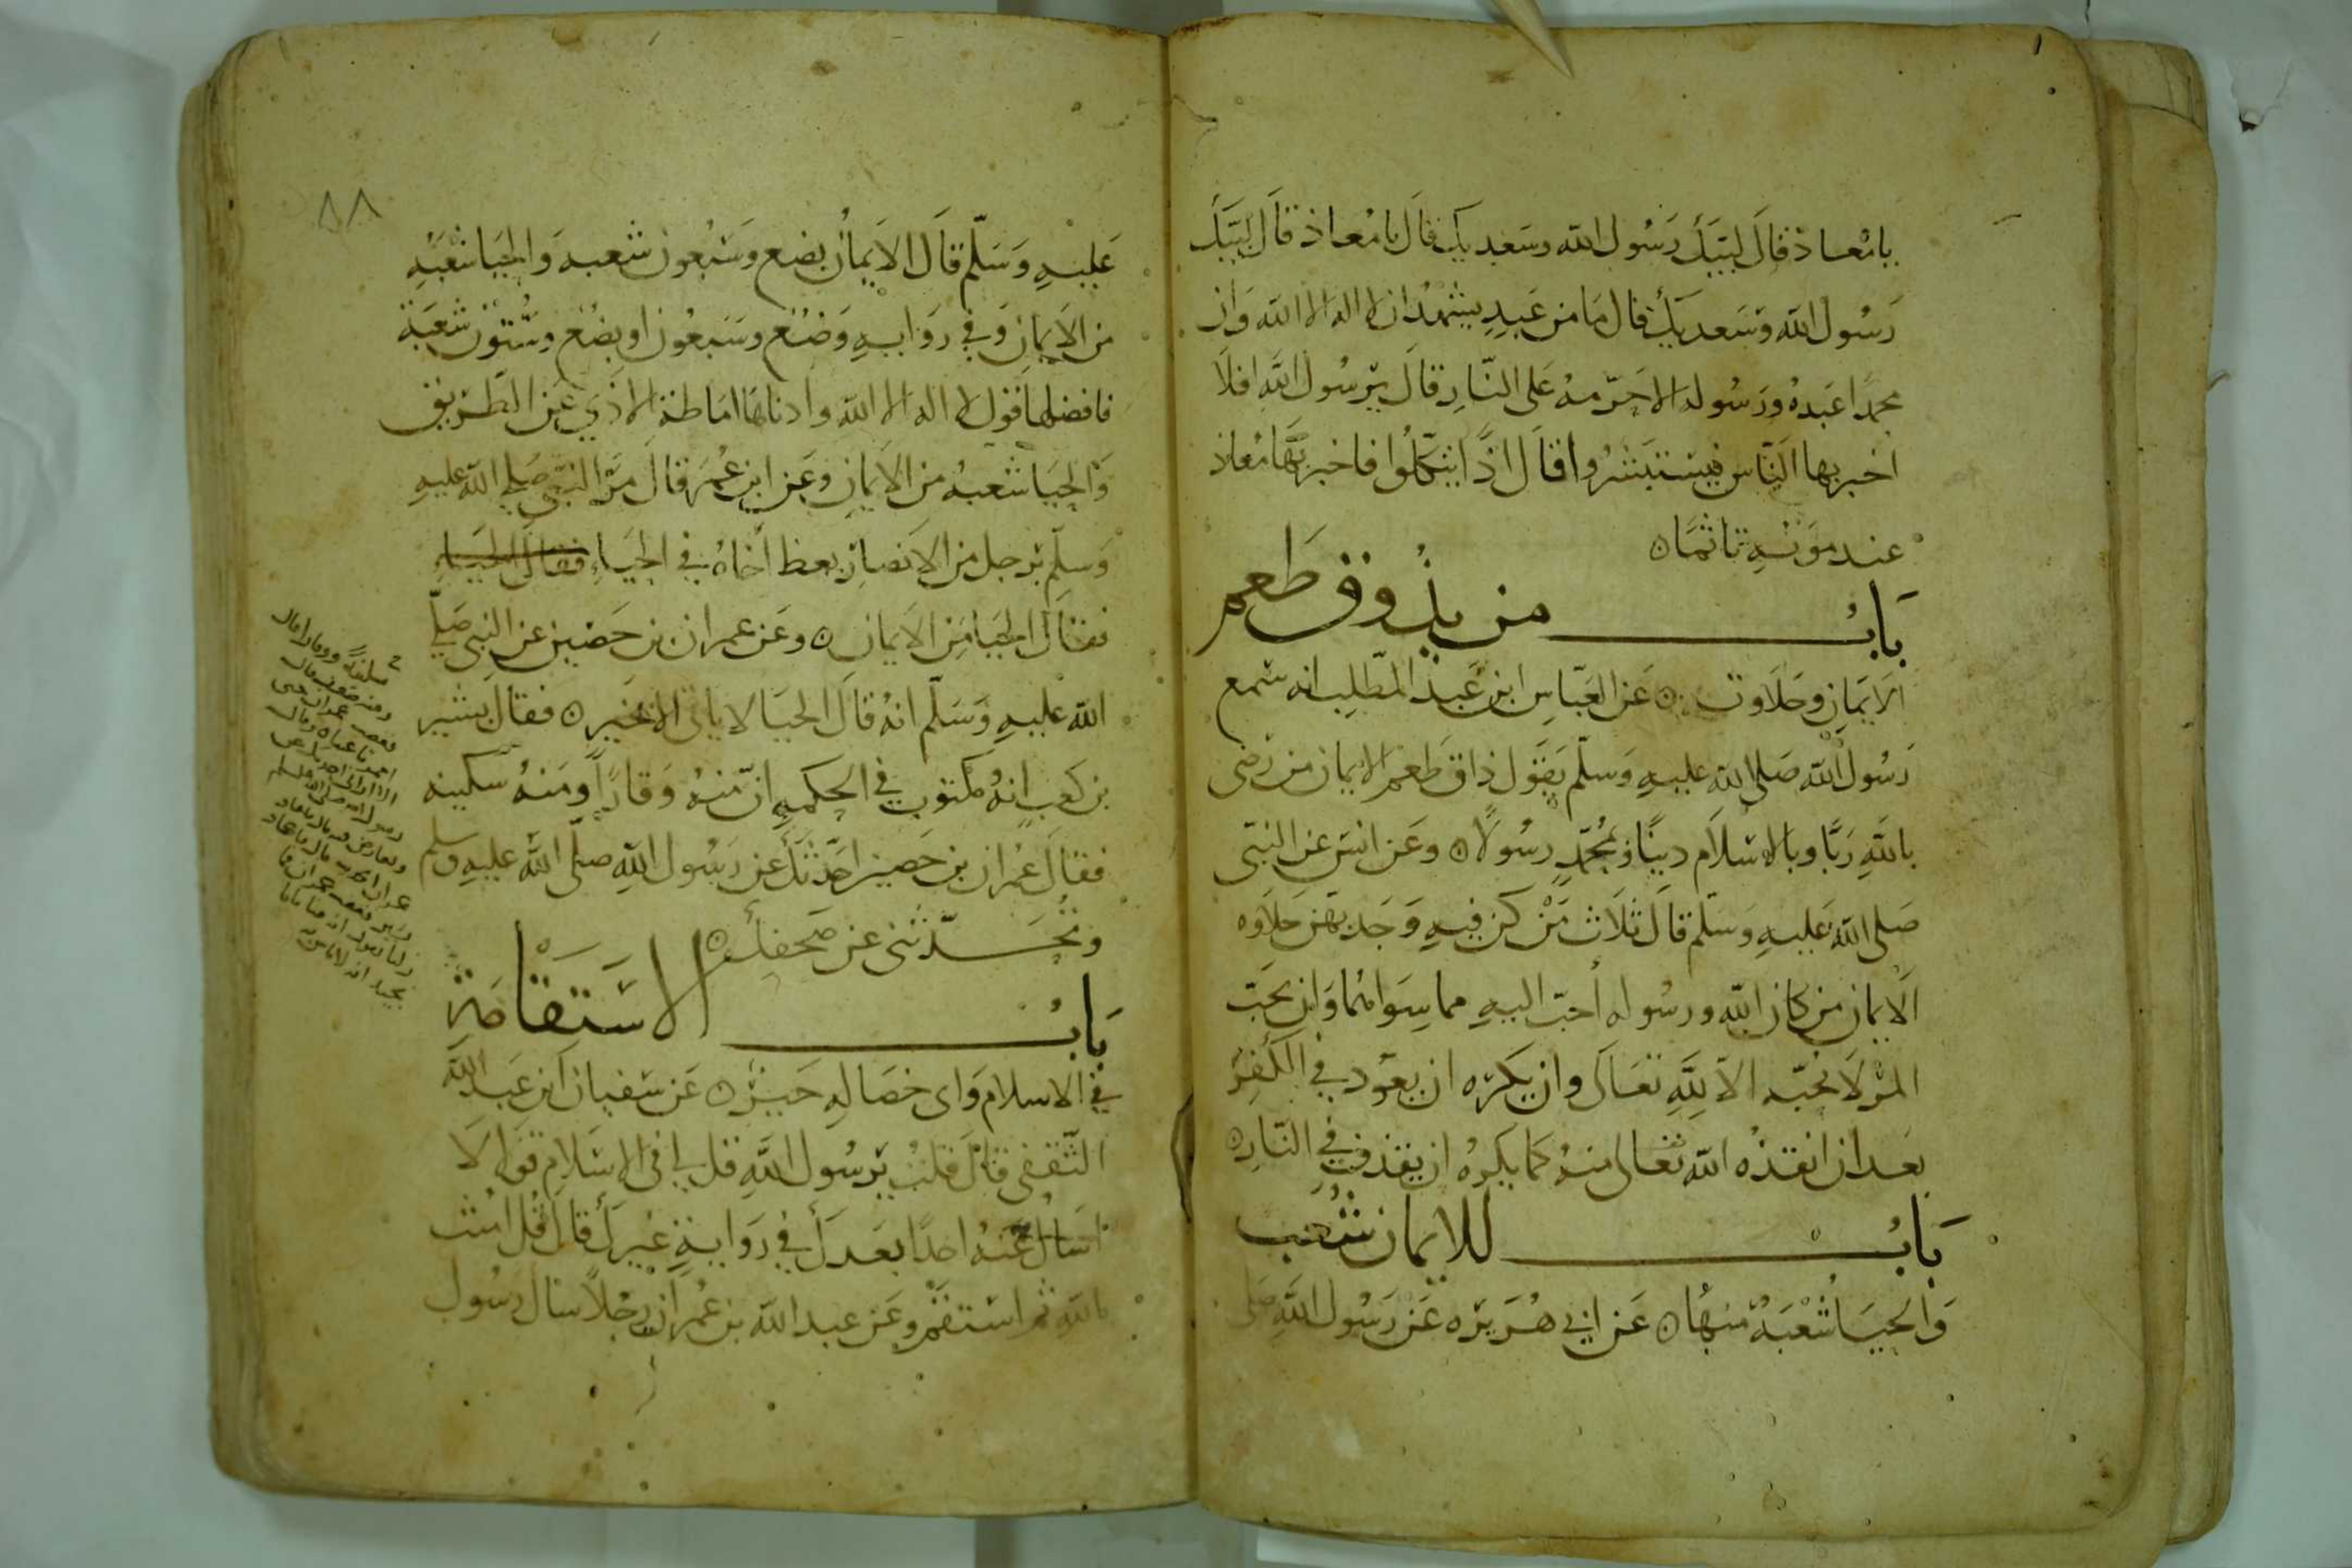 يا معاذ قال لبيك رسول الله وسعديك قال يا معاذ قال لبيك
رسول الله وسعديك قال ما من عبد يشهد ان لا اله الا الله وان
محمدا عبده ورسوله الا حرمه على النار قال يرسول الله افلا
اخبر بها الناس فيستبشروا قال اذا يتكلوا فاخبر بها معاذ
عند موته تاثما ه
باب من يذوق طعم
الايمان وحلاوته ه عن العباس ابن عبد المطلب انه سمع
رسول الله صلى الله عليه وسلم يقول ذاق طعم الايمان من رضى
بالله ربا وبالاسلام دينا وبمحمد رسولا ه وعن انس عن النبى
صلى الله عليه وسلم قال ثلاث من كن فيه وجد بهن حلاوه
الايمان من كان الله ورسوله أحب اليه مما سواهما وان يحب
المرء لا يحبه الا لله تعالى وان يكره ان يعود في الكفر
بعد ان انقذه الله تعالى منه كما يكره ان يقذف في النار ه
باب للايمان شعب
والحيا شعبة منها ه عن ابي هريره عن رسول الله صلى
٨٨
عليه وسلم قال الايمان بضع وسبعون شعبه والحيا شعبه
من الايمان وفي روايه وضع وسبعون او بضع وستون شعبة
فافضلها قول لا اله الا الله وادناها اماطة الاذي عن الطريق
والحيا شعبه من الايمان وعن ابن عمر قال مر النبى صلى الله عليه
وسلم برجل من الانصار يعظ أخاه في الحياء فقال الحياء
فقال الحيا من الايمان ه وعن عمران بن حضين عن النبى صلى
الله عليه وسلم انه قال الحيا لا ياتى الا بخير ه فقال بشير
بن كعب انه مكتوب في الحكمه ان منه وقارا ومنه سكينه
فقال عمران بن حصين احدثك عن رسول الله صلى الله عليه وسلم
وتحدثنى عن صحفك ه
باب الاستقامة
في الاسلام واى خصاله خير ه عن سفيان ابن عبد الله
الثقفى قال قلت يرسول الله قل لي في الاسلام قولا لا
اسال عنه احدا بعدك في رواية غيرك قال قل امنت
بالله ثم استقم وعن عبد الله بن عمر ان رجلا سال رسول